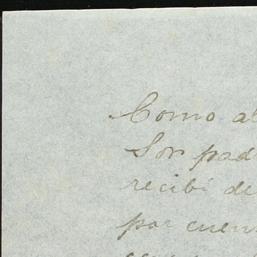 Como al
Son pad
recibi de
por cuen